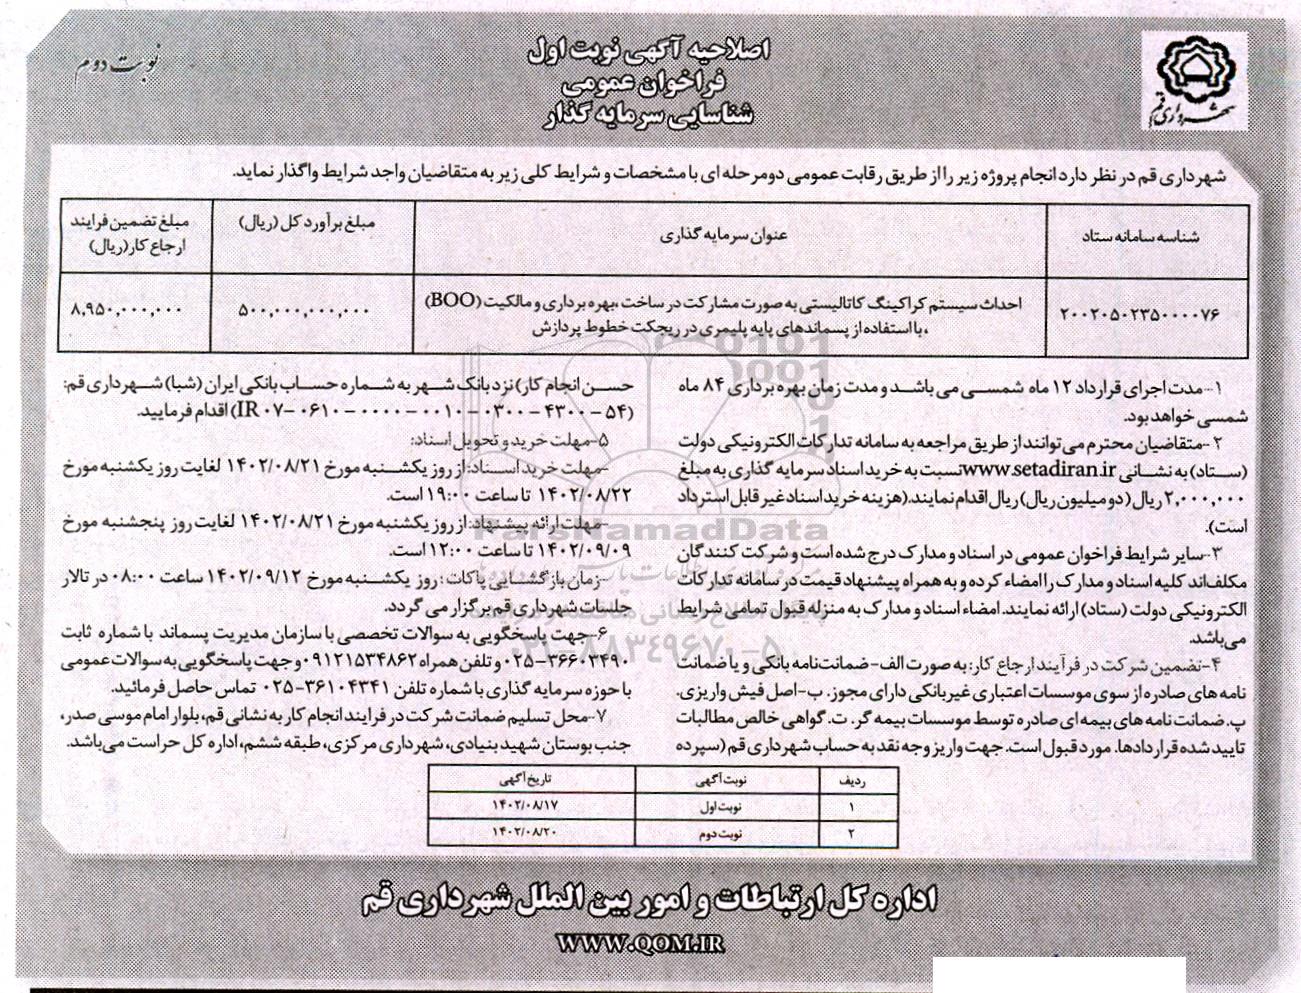 اصلاحیه آگهی نوبت اول
فراخوان عمومی
شناسایی سرمایه گذار
نوبت دوم
شهرداری قم
شهرداری قم در نظر دارد انجام پروژه زیر را از طریق رقابت عمومی دومرحله ای با مشخصات و شرایط کلی زیر به متقاضیان واجد شرایط واگذار نماید.
شناسه سامانه ستاد
عنوان سرمایه گذاری
مبلغ برآورد کل (ریال)
مبلغ تضمین فرایند
ارجاع کار(ریال)
۲۰۰۲۰۵۰۲۳۵۰۰۰۰۷۶
احداث سیستم کراکینگ کاتالیستی به صورت مشارکت در ساخت ،بهره برداری و مالکیت (BOO)
،با استفاده از پسماندهای پایه پلیمری در ریجکت خطوط پردازش
۵۰۰,۰۰۰,۰۰۰,۰۰۰
۸,۹۵۰,۰۰۰,۰۰۰
۱-مدت اجرای قرارداد ۱۲ ماه شمسی می باشد و مدت زمان بهره برداری ۸۴ ماه
شمسی خواهد بود.
۲-متقاضیان محترم می توانند از طریق مراجعه به سامانه تدارکات الکترونیکی دولت
(ستاد) به نشانی www.setadiran.ir نسبت به خرید اسناد سرمایه گذاری به مبلغ
۲,۰۰۰,۰۰۰ ریال (دو میلیون ریال) ریال اقدام نمایند.(هزینه خرید اسناد غیر قابل استرداد
است).
۳-سایر شرایط فراخوان عمومی در اسناد و مدارک درج شده است و شرکت کنندگان
مکلف‌اند کلیه اسناد و مدارک را امضاء کرده و به همراه پیشنهاد قیمت در سامانه تدارکات
الکترونیکی دولت (ستاد) ارائه نمایند. امضاء اسناد و مدارک به منزله قبول تمامی شرایط
می‌باشد.
۴-تضمین شرکت در فرآیند ارجاع کار: به صورت الف-ضمانت‌نامه بانکی و یا ضمانت
نامه های صادره از سوی موسسات اعتباری غیربانکی دارای مجوز. ب-اصل فیش واریزی.
پ. ضمانت نامه های بیمه ای صادره توسط موسسات بیمه گر. ت. گواهی خالص مطالبات
تایید شده قراردادها. مورد قبول است. جهت واریز وجه نقد به حساب شهرداری قم (سپرده
حسن انجام کار) نزد بانک شهر به شماره حساب بانکی ایران (شبا) شهرداری قم:
(۵۴ - ۴۳۰۰ - ۰۳۰۰ - ۰۰۱۰ - ۰۰۰۰ - ۰۶۱۰ - IR۰۷) اقدام فرمایید.
۵-مهلت خرید و تحویل اسناد:
-مهلت خرید اسناد: از روز یکشنبه مورخ ۱۴۰۲/۰۸/۲۱ لغایت روز یکشنبه مورخ
۱۴۰۲/۰۸/۲۲ تا ساعت ۱۹:۰۰ است.
-مهلت ارائه پیشنهاد: از روز یکشنبه مورخ ۱۴۰۲/۰۸/۲۱ لغایت روز پنجشنبه مورخ
۱۴۰۲/۰۹/۰۹ تا ساعت ۱۲:۰۰ است.
-زمان بازگشایی پاکات : روز یکشنبه مورخ ۱۴۰۲/۰۹/۱۲ ساعت ۰۸:۰۰ در تالار
جلسات شهرداری قم برگزار می گردد.
۶-جهت پاسخگویی به سوالات تخصصی با سازمان مدیریت پسماند با شماره ثابت
۰۲۵-۳۶۶۰۳۴۹۰ و تلفن همراه ۰۹۱۲۱۵۳۴۸۶۲ و جهت پاسخگویی به سوالات عمومی
با حوزه سرمایه گذاری با شماره تلفن ۰۲۵-۳۶۱۰۴۳۴۱ تماس حاصل فرمائید.
۷-محل تسلیم ضمانت شرکت در فرایند انجام کار به نشانی قم، بلوار امام موسی صدر،
جنب بوستان شهید بنیادی، شهرداری مرکزی، طبقه ششم، اداره کل حراست می‌باشد.
ردیف
نوبت آگهی
تاریخ آگهی
۱
نوبت اول
۱۴۰۲/۰۸/۱۷
۲
نوبت دوم
۱۴۰۲/۰۸/۲۰
اداره کل ارتباطات و امور بین الملل شهرداری قم
WWW.QOM.IR
ParsNamadData
۰۲۱-۸۸۳۴۹۶۷۰-۵